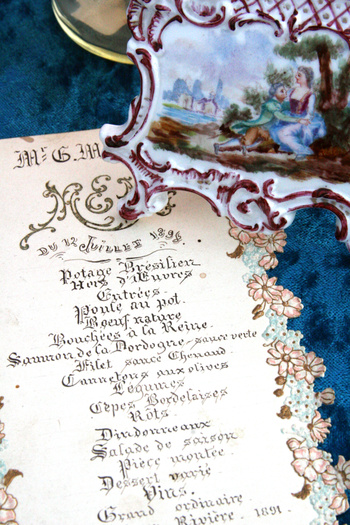 Mr G. M
ME
du 12 Juillet 1896
Potage Brésilien
Hors d'Œuvres
Entrées.
Poule au pot.
Bœuf nature
Bouchées à la Reine.
Saumon de la Dordogne sauce verte
Filet sauce Chenaud
Cannetons aux olives
Légumes
Cèpes Bordelaises
Rôts.
Dindonneaux
Salade de saison
Pièce montée.
Dessert varié
Vins.
Grand ordinaire
Rivière. 1891.